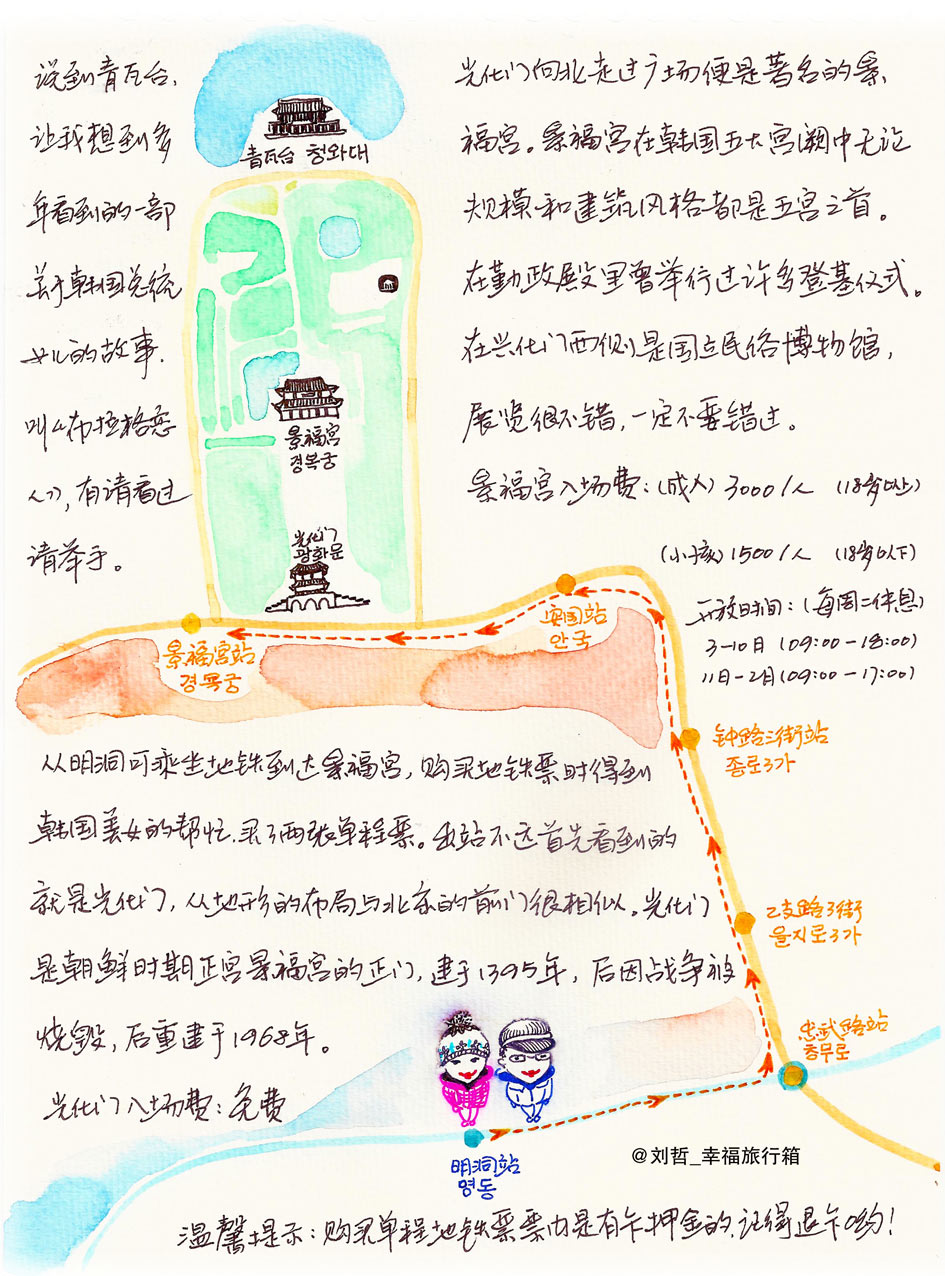 说到青瓦台，
让我想到多
年看到的一部
关于韩国总统
女儿的故事.
叫《布拉格恋
人》，有请看过
请举手。
青瓦台 청와대
景福宫
경복궁
光化门
광화문
光化门向北走过广场便是著名的景
福宫。景福宫在韩国五大宫阙中无论
规模和建筑风格都是五宫之首。
在勤政殿里曾举行过许多登基仪式。
在兴化门西侧是国立民俗博物馆，
展览很不错，一定不要错过。
景福宫入场费：(成人) 3000/人 (18岁以上)
(小孩) 1500/人 (18岁以下)
开放时间：(每周二休息)
3-10日 (09:00-18:00)
11日-2月 (09:00-17:00)
景福宫站
경복궁
安国站
안국
钟路三街站
종로3가
乙支路3街
을지로3가
忠武路站
충무로
从明洞可乘坐地铁到达景福宫，购买地铁票时得到
韩国美女的帮忙.买了两张单程票。出站不远首先看到的
就是光化门，从地形的布局与北京的前门很相似。光化门
是朝鲜时期正宫景福宫的正门，建于1395年，后因战争被
烧毁，后重建于1968年。
光化门入场费：免费
明洞站
명동
@刘哲_幸福旅行箱
温馨提示：购买单程地铁票票内是有卡押金的.记得退卡哟！